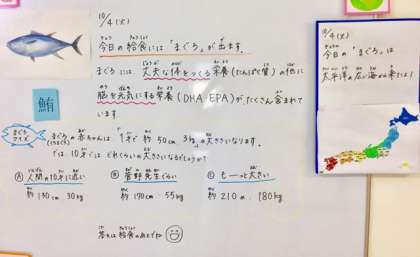 10/4(火)
今日の給食には「まぐろ」が出ます。
まぐろには丈夫な体をつくる栄養(たんぱく質)の他に
脳を元気にする栄養(DHA・EPA)がたくさん含まれて
います
鮪
まぐろクイズ
まぐろの赤ちゃんは「1才で約50cm 3kg」の大きさになります。
では、10才ではどれくらいの大きさになるでしょうか?
Ⓐ人間の10才に近い
約130cm・30kg
Ⓑ菅野先生くらい
約170cm・55kg
Ⓒもーっと大きい
約210cm・180kg
答えは給食のあとでね
10/4(火)
今日の「まぐろ」は
太平洋の広い海から来たよ!